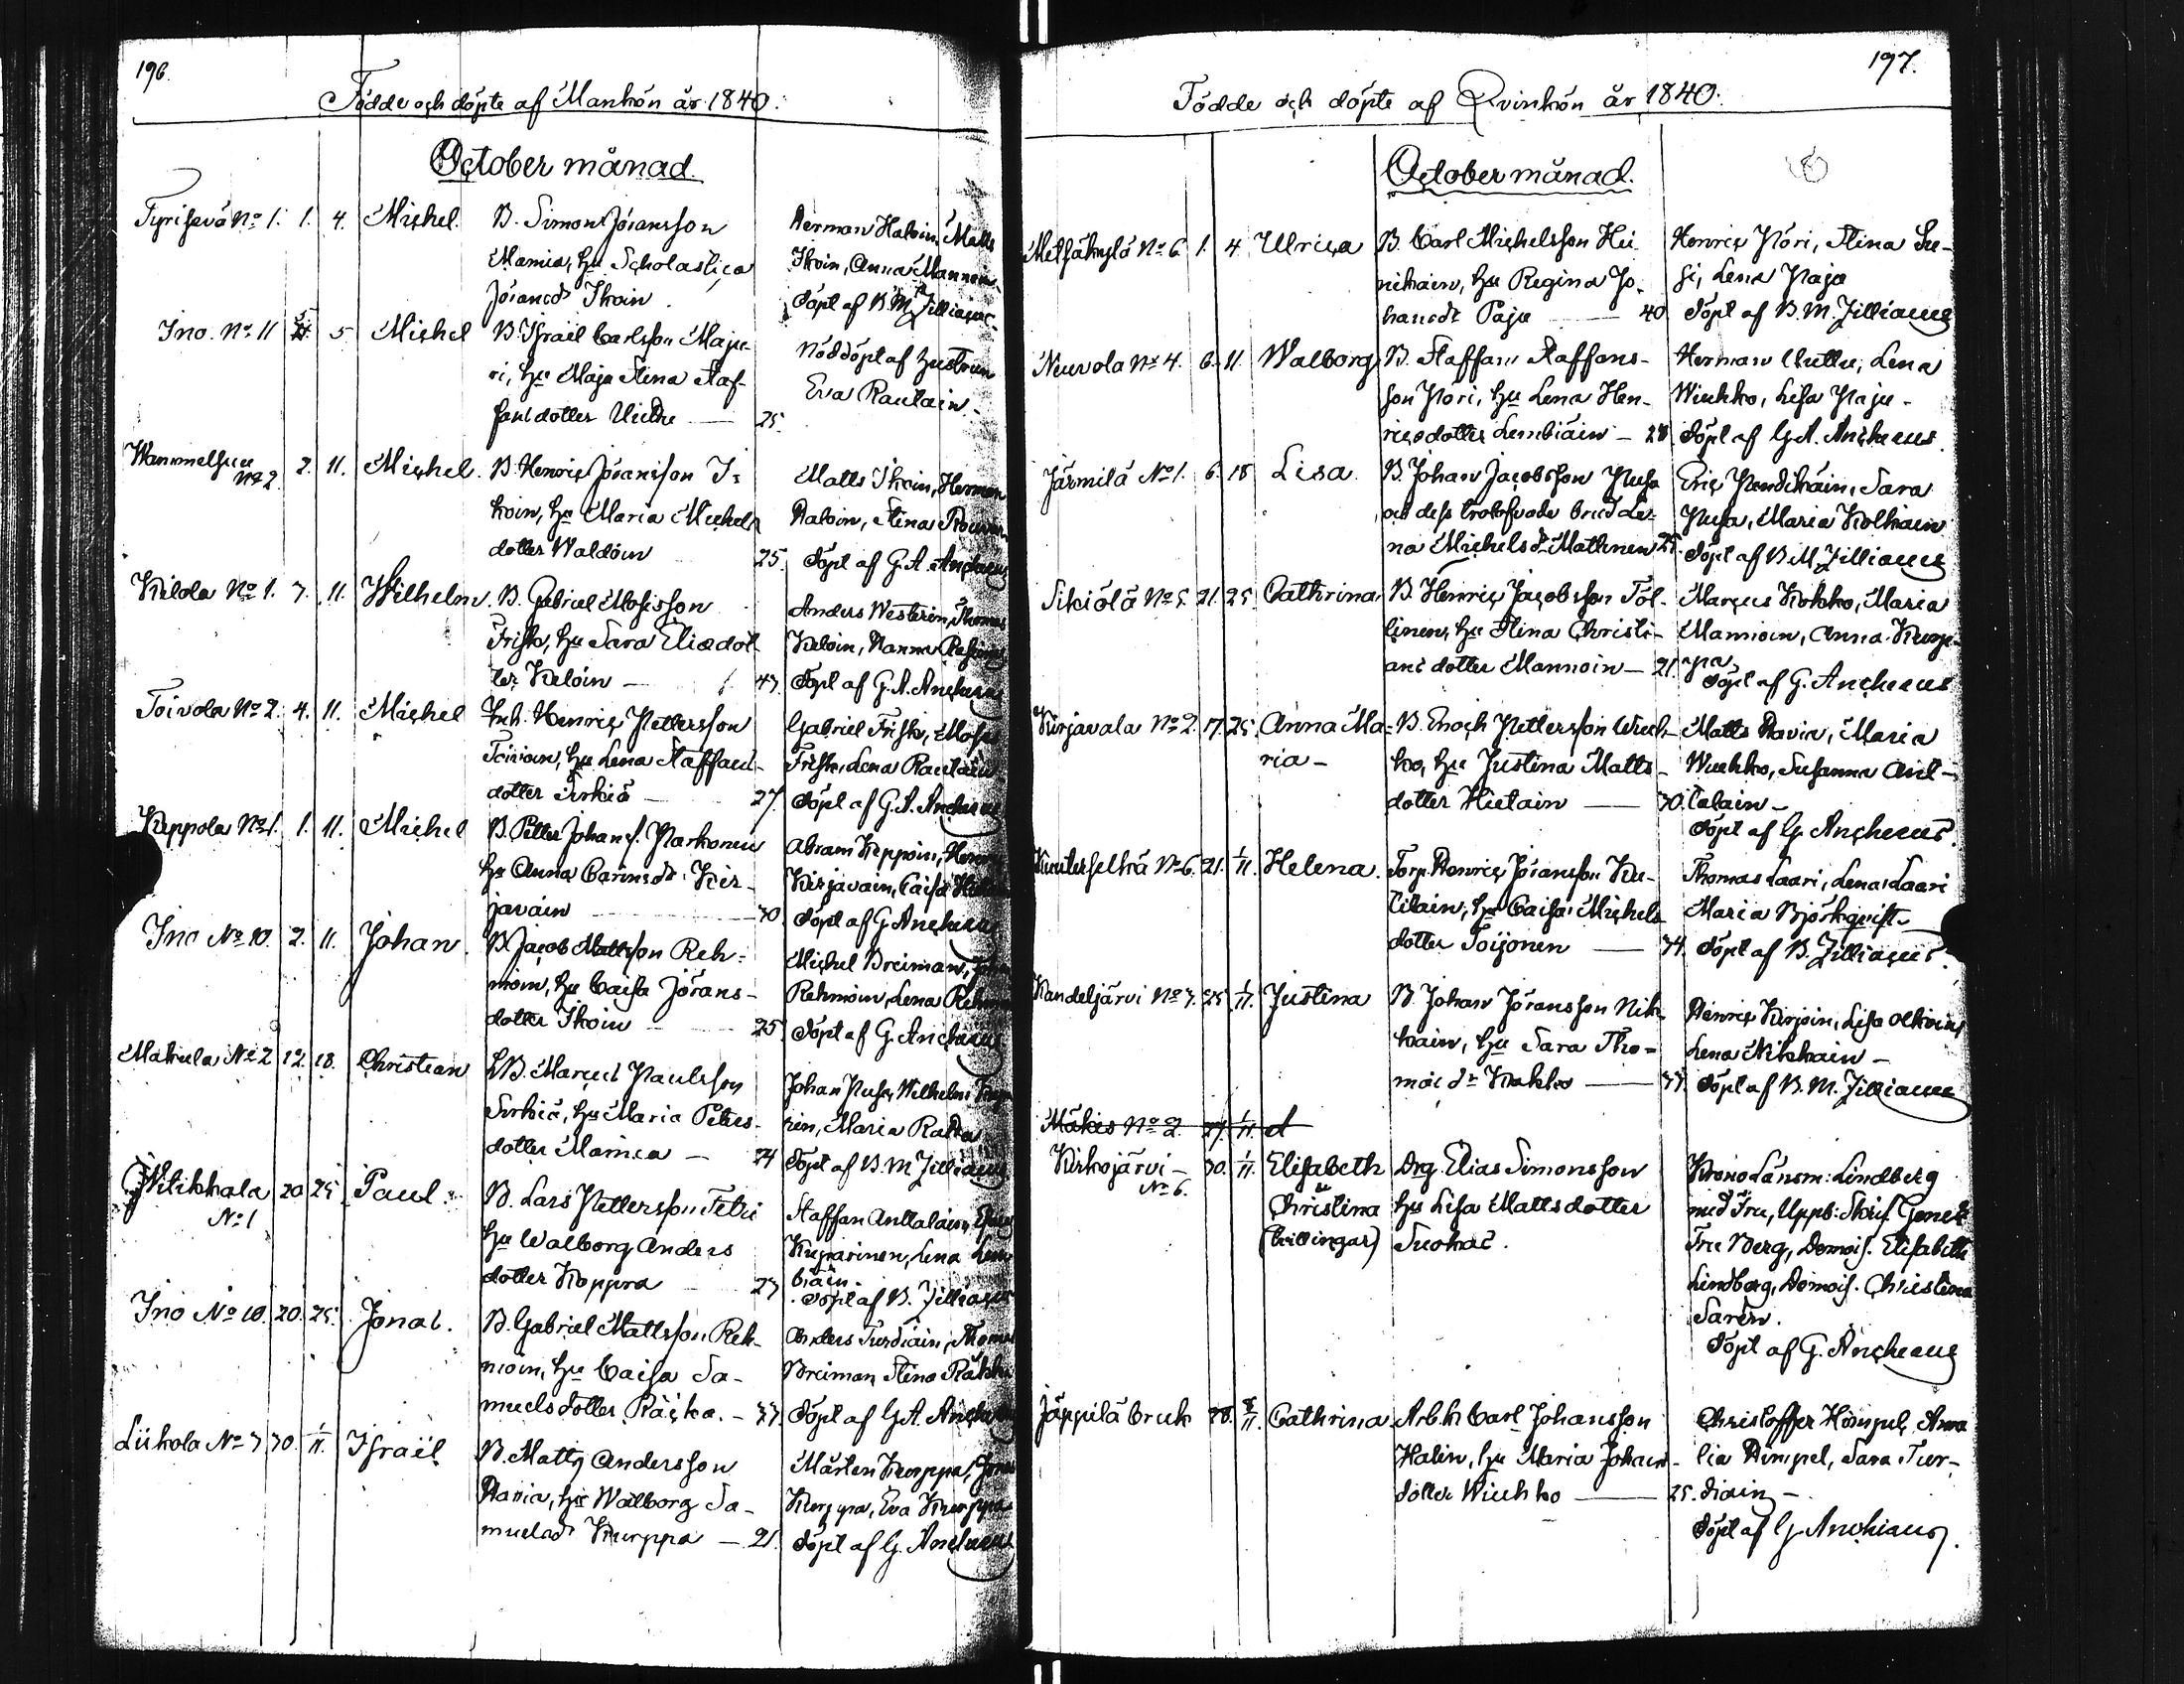 196.
Födde och döpte af Mankön år 1840.
October månad.
Tyrisevä No 1. 1. 4. Michel. B. Simon Jöransson
Mamia, hu Scholastica
Jöransdr Ikoin.
Herman Haloin, Matts
Ikoin, Anna Mannoin
döpt af B. M. Zilliacus
Ino. No 11 5 Michel B. Israel Carlsson Maju-
ri, hu Maja Stina Staf-
fansdotter 25.
Nöddöpt af hustrun
Eva Rautain.
Wammelsuu
No 2 2. 11. Michel. B. Henric Jöransson I-
koin, hu Maria Michels
dotter Waldoin 25.
Matts Ikoin, Herman
Haloin, Stina
döpt af G. A. Ancheus
Kilola No 1. 7. 11. Wilhelm. B. Gabriel Mosisson
Frisk, hu Sara Eliædot
ter Keloin 43
Anders Westerin, Thomas
Keloin, Hanna
döpt af G. A. Ancheus
Toivola No 2. 4. 11. Michel Inh. Henric Pettersson
Toivoin, hu Lena Staffans-
dotter Sirkiä 27.
Gabriel Frisk, Moses
Frisk, Lena Rautain
döpt af G. A. Ancheus
Keppola No 1. 1. 11. Michel B. Petter Johans. Parkonen
hu Anna Carinsdr Kir-
javain 30
Abram Keppoin, Henric
Kirjavain, Caisa
döpt af G. Ancheus
Ino No 10. 2. 11. Johan. B. Jacob Mattsson Reh-
moin, hu Caisa Jörans-
dotter Ikoin 25
Michel Breiman, Johan
Rehmoin, Lena Rehmoin
döpt af G. Ancheus
Makula No 2 12. 18. Christian B. Marcus Paulsson
Sirkiä, hu Maria Peters-
dotter Mamia 24
Johan Pusa, Wilhelm
Maria
döpt af B. M. Zilliacus
Witikkala
No 1 20 25 Paul. B. Lars Pettersson Petri
hu Walborg Anders
dotter Koppra 23
Staffan Anttalain,
Kuparinen, Lena Lem-
biäin.
döpt af B. Zilliacus
Ino No 10. 20. 25. Jonas. B. Gabriel Mattsson Reh-
moin, hu Caisa Sa-
muelsdotter Räcka. 33.
Anders Turdiain, Thomas
Breiman, Stina
döpt af G. A. Ancheus
Liikola No 3 30. 1/11. Israël B. Matts Andersson
Hania, hu Walborg Sa-
muelsdr Kurppa 21.
Mårten Kurppa, Jonas
Kurppa, Eva Kurppa
döpt af G. Ancheus
197.
Födde och döpte af Qvinkön år 1840.
October månad.
Metsäkylä No 6. 1. 4 Ulrica B. Carl Michelsson Hei-
nikain, hu Regina Jo-
hansdr Paju 40
Henric Pöri, Stina Su-
si, Lena Paju
döpt af B. M. Zilliacus
Neuvola No 4. 6. 11. Walborg B. Staffan Staffans-
son Pöri, hu Lena Hen-
ricsdotter Lembiäin 28
Herman Wuttu, Lena
Wiukko, Lisa Paju.
döpt af G. A. Ancheus.
Järmilä No 1. 6. 18 Lisa. B. Johan Jacobsson Pusa
och dess trolofvade brud Le-
na Michelsdr Mattinen 25.
Eric Pendikäin, Sara
Pusa, Maria Kolkain
döpt af B. M. Zilliacus
Sikiölä No 5. 21. 25 Cathrina B. Henric Jacobsson Pöl-
linen, hu Stina Christi-
ans dotter Mannoin 21.
Marcus Kokko, Maria
Mannoin, Anna Kurp-
pa,
döpt af G. Ancheus
Kirjavala No 2. 17. 25. Anna Ma-
ria B. Enoch Pettersson Wiuk-
ko, hu Justina Matts-
dotter Hietain 30.
Matts Havia, Maria
Wiukko, Susanna Ant-
talain
döpt af G. Ancheus.
Kuuterselkä No 6. 21. 1/11. Helena. Torp. Henric Jöransson Ku-
tilain, hu Caisa Michels
dotter Toijonen 34.
Thomas Laari, Lena Laari
Maria Björkqvist
döpt af B. Zilliacus.
Kandeljärvi No 3. 25 1/11. Justina B. Johan Jöransson Nik-
kain, hu Sara Tho-
mæ dr Kokko 33.
Henric Kirjoin, Lisa
Lena Nikkain
döpt af B. M. Zilliacus
Mäkis No 2. 27. 1/11.
Kirkojärvi
No 6. 30. 1/11. Elisabeth
&
Christina
(tvillingar) Drg. Elias Simonsson
hu Lisa Mattsdotter
Suokas.
Krono Länsm: Lindberg
med Fru, Uppb: Skrif.
Fru Berg, Demois. Elisabeth
Lindberg, Demois. Christina
Sarén.
döpt af G. Ancheus
Jäppilä bruk 28. 8/11. Cathrina Arb.k Carl Johansson
Halin, hu Maria Johans-
dotter Wiukko 25.
Christoffer Himpel, Ama-
lia Himpel, Sara Tur-
diain
döpt af G. Ancheus.